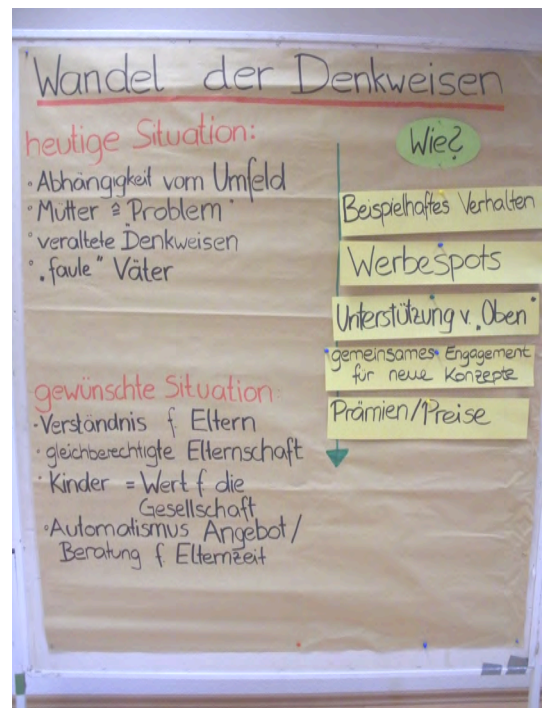 Wandel der Denkweisen
heutige Situation:
• Abhängigkeit vom Umfeld
• Mütter ≙ Problem
• veraltete Denkweisen
• „faule" Väter
gewünschte Situation
• Verständnis f. Eltern
• gleichberechtigte Elternschaft
• Kinder = Wert f. die
Gesellschaft
• Automatismus Angebot/
Beratung f. Elternzeit
Wie?
Beispielhaftes Verhalten
Werbespots
Unterstützung v. „Oben"
gemeinsames Engagement
für neue Konzepte
Prämien/Preise